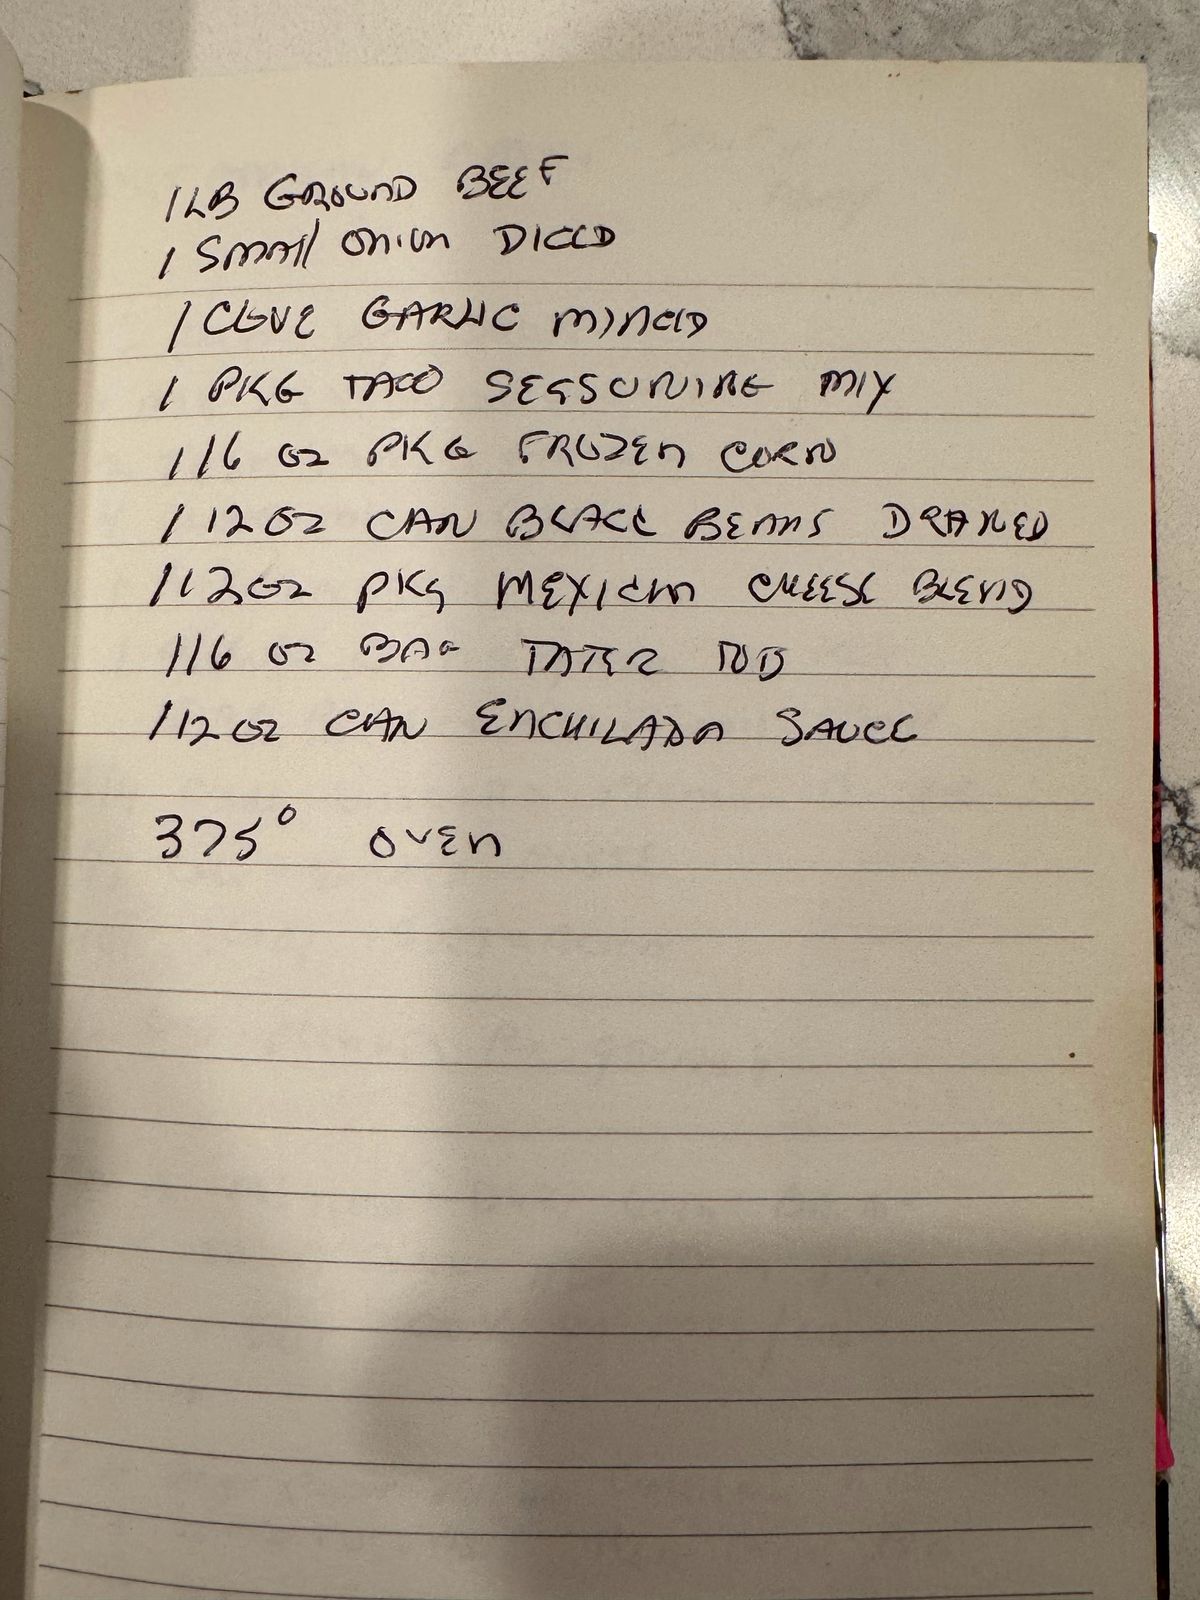 1 LB GROUND BEEF
1 SMALL ONION DICED
1 CLOVE GARLIC MINCED
1 PKG TACO SEASONING MIX
1 16 OZ PKG FROZEN CORN
1 12 OZ CAN BLACK BEANS DRANED
1 12 OZ PKG MEXICAN CHEESE BLEND
1 16 OZ BAG TATER TOTS
1 12 OZ CAN ENCHILADA SAUCE
375° OVEN